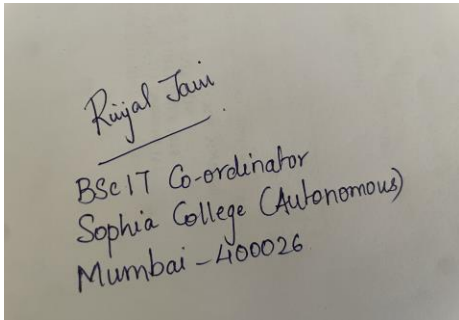 Rinjal Jain
BSc IT Co-ordinator
Sophia College (Autonomous)
Mumbai - 400026